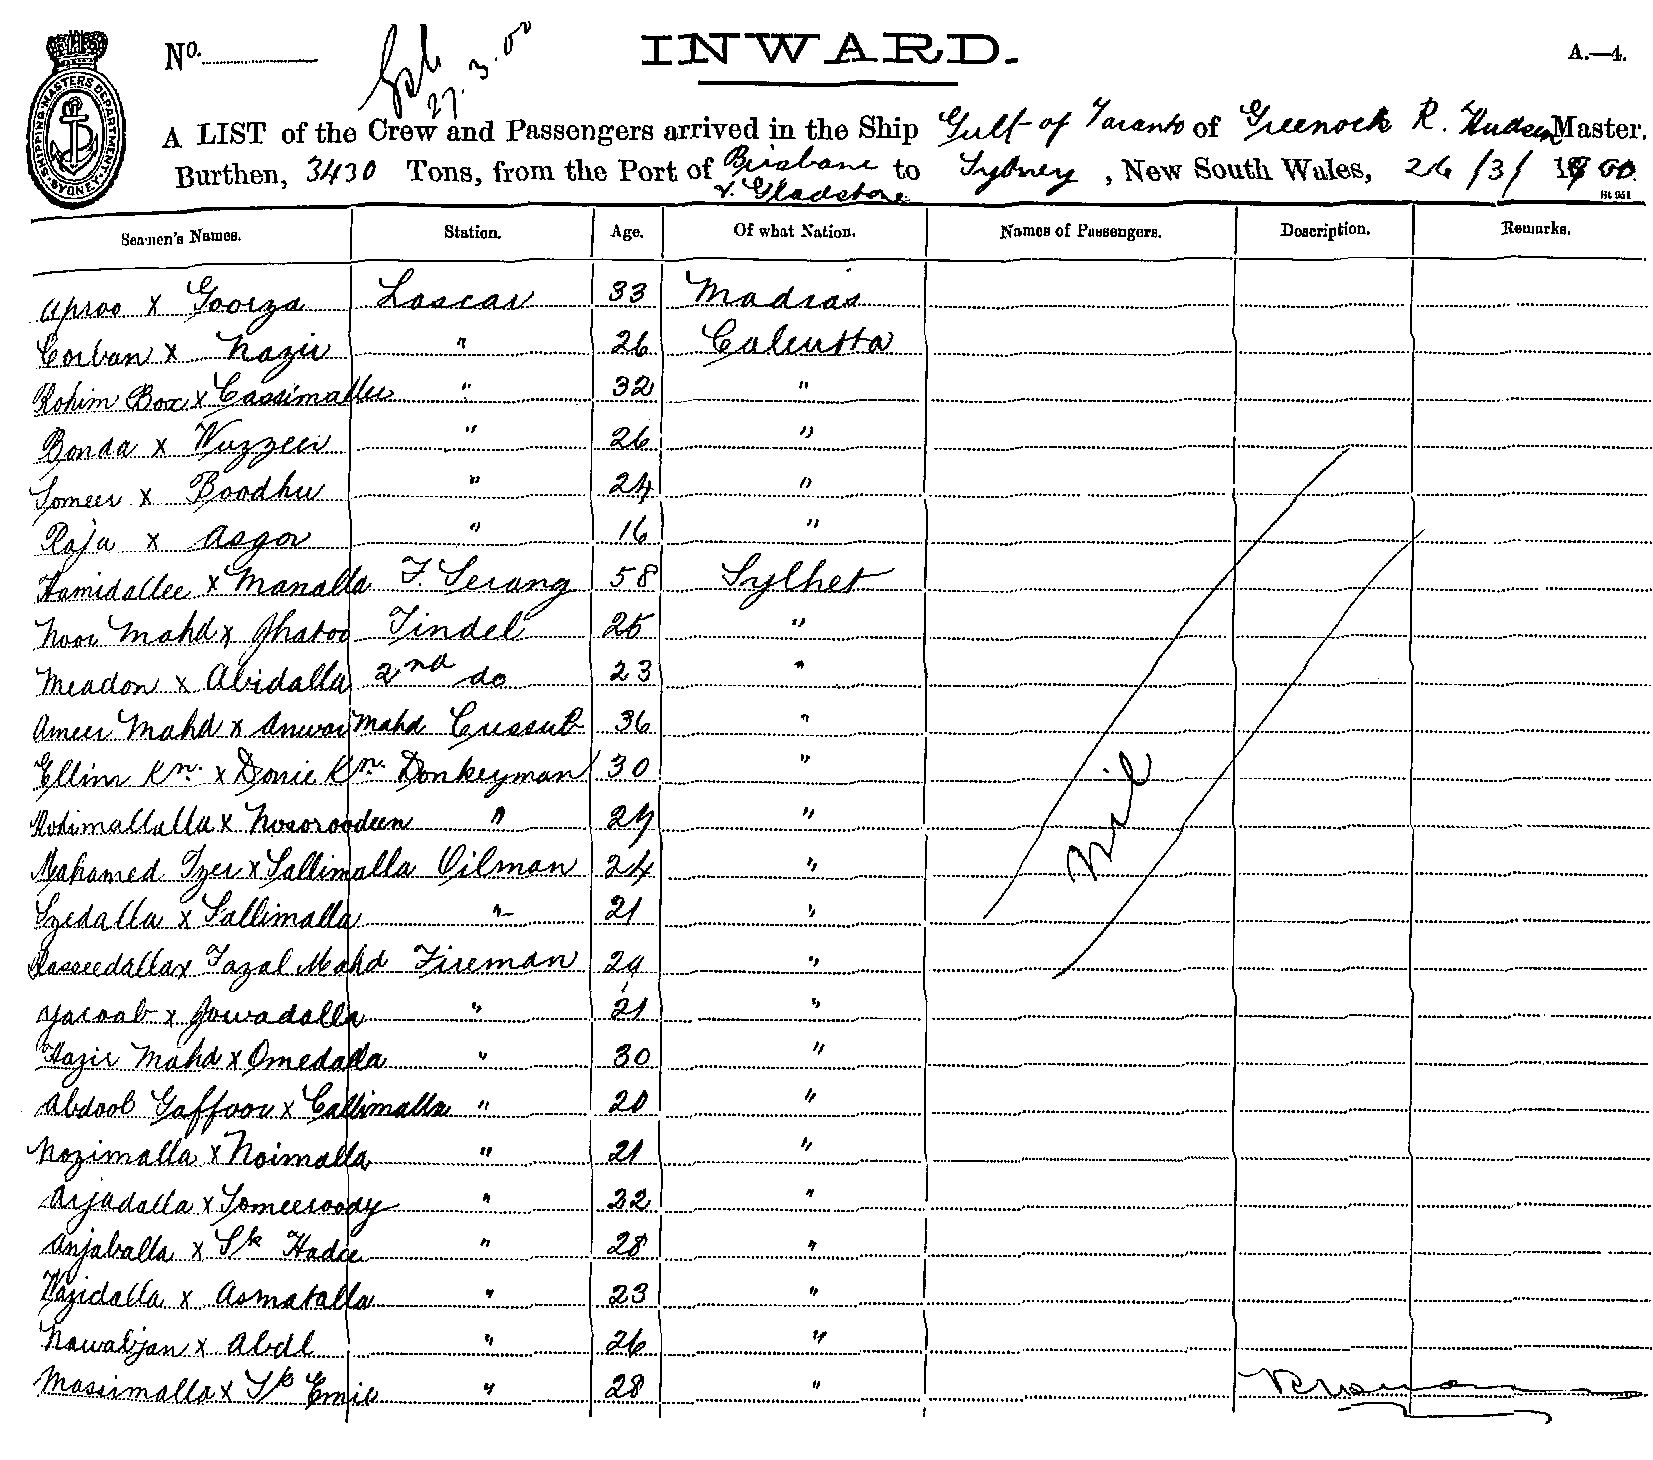 No.
27.3.00
INWARD.
A.—4.
SHIPPING MASTERS DEPARTMENT
SYDNEY
A LIST of the Crew and Passengers arrived in the Ship Gulf of Taranto of Greenock R. Hudson Master.
Burthen, 3430 Tons, from the Port of Brisbane v. Gladstone to Sydney, New South Wales, 26/3/1900.
Seamen's Names. Station. Age. Of what Nation. Names of Passengers. Description. Remarks.
Aproo x Goorza Lascar 33 Madras
Corban x Nazir " 26 Calcutta
Rohim Box x Cassimallee " 32 "
Bonda x Wuzzeer " 26 "
Someer x Boodhu " 24 "
Raja x Asgor " 16 "
Hamidallee x Manalla F. Serang 58 Sylhet
Noor Mahd x Jhatoo Tindel 25 "
Meadon x Abidalla 2nd do 23 "
Ameer Mahd x Anwar Mahd Cussub 36 "
Ellim Kn. x Donie Kn. Donkeyman 30 "
x Nosoroodeen " 27 "
Mahamed x Sallimalla Oilman 24 "
x Sallimalla " 21 "
Nil
x Fazal Mahd Fireman "
Yacoob x Jowadalla " 21 "
Hazir Mahd x Omedalla " 30 "
Abdool Gaffoor x Callimalla " 20 "
Nozimalla x Noimalla " 21 "
Arjadalla x Someeroody " 22 "
Anjaballa x Sk Hadie " 28 "
Wazidalla x Asmatalla " 23 "
Nawabjan x Abdl " 26 "
Massimalla x Sk Emir " 28 "